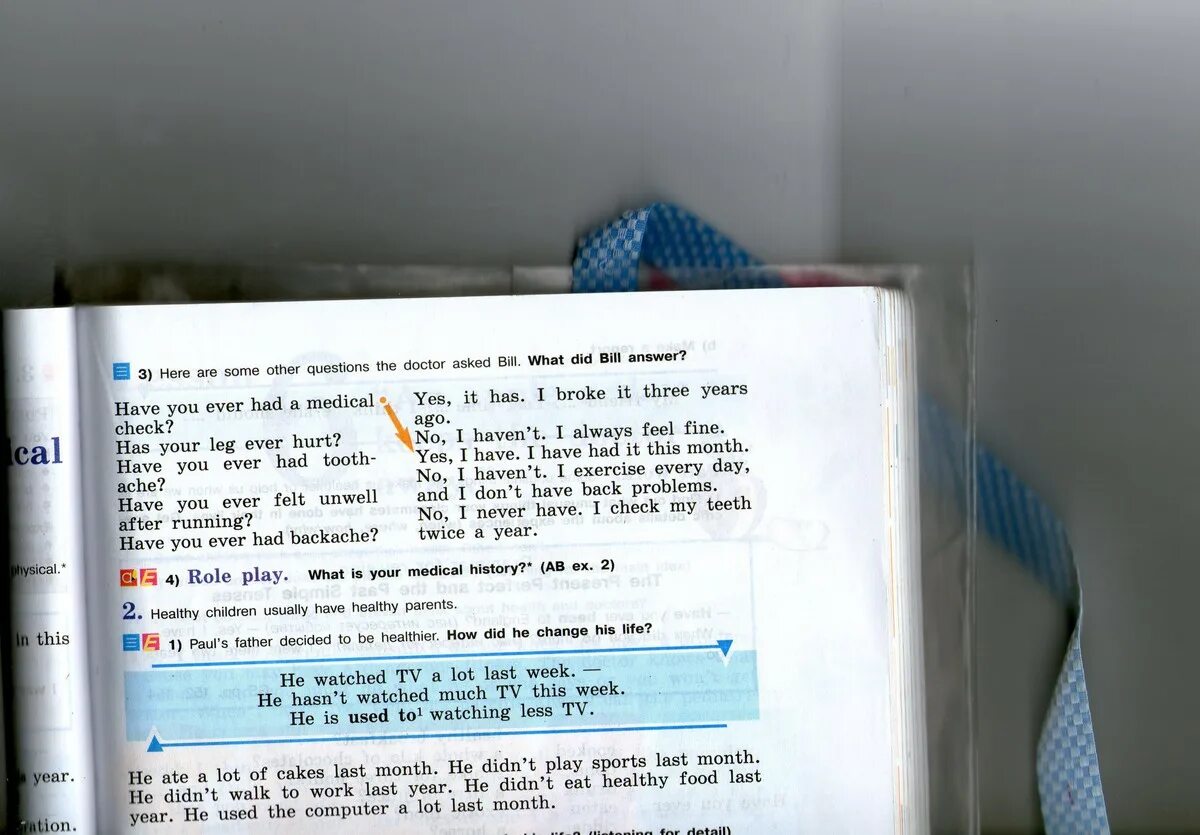 3) Here are some other questions the doctor asked Bill. What did Bill answer?
Have you ever had a medical
check?
Has your leg ever hurt?
Have you ever had tooth-
ache?
Have you ever felt unwell
after running?
Have you ever had backache?
Yes, it has. I broke it three years
ago.
No, I haven't. I always feel fine.
Yes, I have. I have had it this month.
No, I haven't. I exercise every day,
and I don't have back problems.
No, I never have. I check my teeth
twice a year.
4) Role play. What is your medical history?* (AB ex. 2)
2. Healthy children usually have healthy parents.
1) Paul's father decided to be healthier. How did he change his life?
He watched TV a lot last week. —
He hasn't watched much TV this week.
He is used to¹ watching less TV.
He ate a lot of cakes last month. He didn't play sports last month.
He didn't walk to work last year. He didn't eat healthy food last
year. He used the computer a lot last month.
(listening for detail)
ical
physical.*
In this
year.